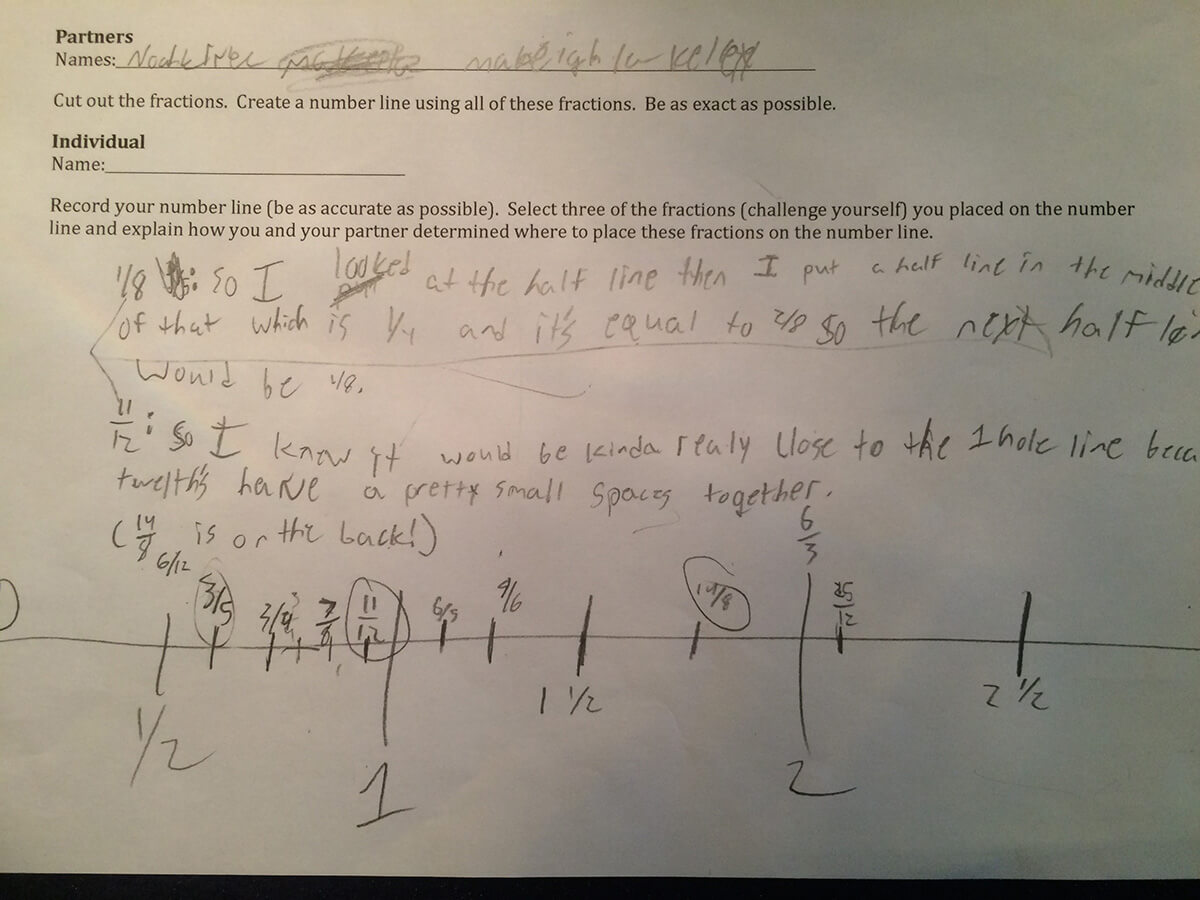 Partners
Names:
Cut out the fractions. Create a number line using all of these fractions. Be as exact as possible.
Individual
Name:
Record your number line (be as accurate as possible). Select three of the fractions (challenge yourself) you placed on the number
line and explain how you and your partner determined where to place these fractions on the number line.
1/8 : so I looked at the half line then I put a half line in the middle
of that which is 1/4 and it's equal to 2/8 so the next half
would be 1/8.
11/12 : so I know it would be kinda realy close to the 1 hole line beca
twelfth's have a pretty small spaces together.
(14/8 is on the back!)
6/12 3/5 3/4 7/8 11/12 6/5 14/8 6/3 25/12
1/2 1 1 1/2 2 2 1/2